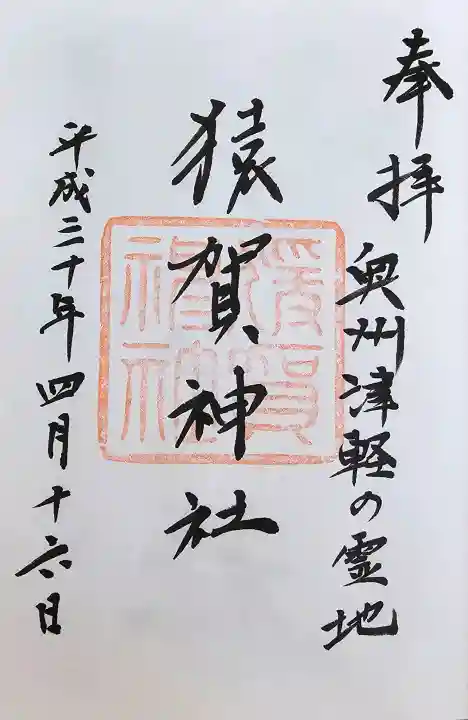 奉拝
奥州津軽の霊地
猿賀神社
平成三十年四月十六日